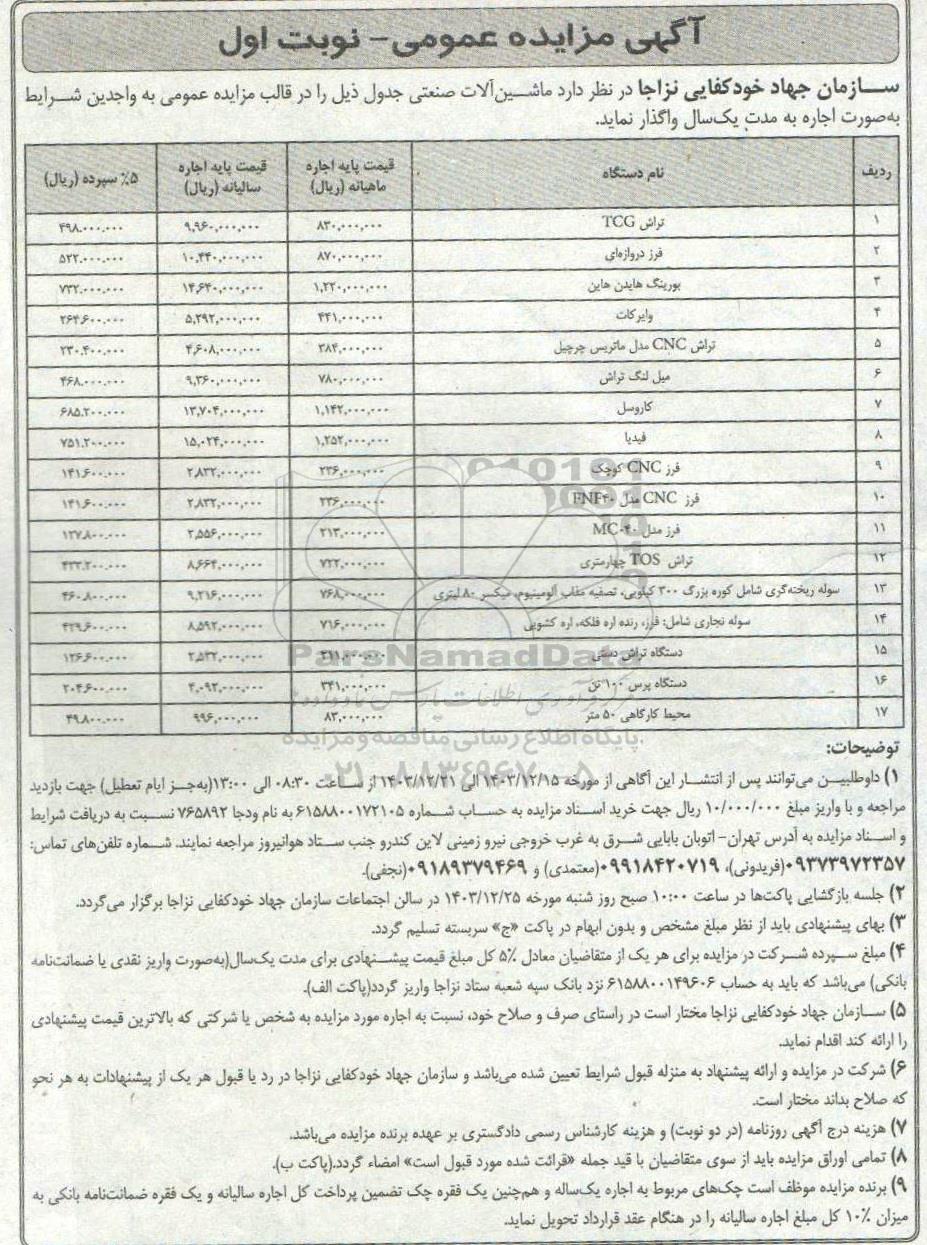 آگهی مزایده عمومی- نوبت اول
سازمان جهاد خودکفایی نزاجا در نظر دارد ماشین‌آلات صنعتی جدول ذیل را در قالب مزایده عمومی به واجدین شرایط
به‌صورت اجاره به مدت یک‌سال واگذار نماید.
ردیف نام دستگاه قیمت پایه اجاره ماهیانه (ریال) قیمت پایه اجاره سالیانه (ریال) ۵٪ سپرده (ریال)
۱ تراش TCG ۸۳۰,۰۰۰,۰۰۰ ۹,۹۶۰,۰۰۰,۰۰۰ ۴۹۸.۰۰۰.۰۰۰
۲ فرز دروازه‌ای ۸۷۰,۰۰۰,۰۰۰ ۱۰,۴۴۰,۰۰۰,۰۰۰ ۵۲۲.۰۰۰.۰۰۰
۳ بورینگ هایدن هاین ۱,۲۲۰,۰۰۰,۰۰۰ ۱۴,۶۴۰,۰۰۰,۰۰۰ ۷۳۲.۰۰۰.۰۰۰
۴ وایرکات ۴۴۱,۰۰۰,۰۰۰ ۵,۲۹۲,۰۰۰,۰۰۰ ۲۶۴.۶۰۰.۰۰۰
۵ تراش CNC مدل ماتریس چرچیل ۳۸۴,۰۰۰,۰۰۰ ۴,۶۰۸,۰۰۰,۰۰۰ ۲۳۰.۴۰۰.۰۰۰
۶ میل لنگ تراش ۷۸۰,۰۰۰,۰۰۰ ۹,۳۶۰,۰۰۰,۰۰۰ ۴۶۸.۰۰۰.۰۰۰
۷ کاروسل ۱,۱۴۲,۰۰۰,۰۰۰ ۱۳,۷۰۴,۰۰۰,۰۰۰ ۶۸۵.۲۰۰.۰۰۰
۸ فیدیا ۱,۲۵۲,۰۰۰,۰۰۰ ۱۵,۰۲۴,۰۰۰,۰۰۰ ۷۵۱.۲۰۰.۰۰۰
۹ فرز CNC کوچک ۲۳۶,۰۰۰,۰۰۰ ۲,۸۳۲,۰۰۰,۰۰۰ ۱۴۱.۶۰۰.۰۰۰
۱۰ فرز CNC مدل FNF۴۰ ۲۳۶,۰۰۰,۰۰۰ ۲,۸۳۲,۰۰۰,۰۰۰ ۱۴۱.۶۰۰.۰۰۰
۱۱ فرز مدل MC۰۴۰ ۲۱۳,۰۰۰,۰۰۰ ۲,۵۵۶,۰۰۰,۰۰۰ ۱۲۷.۸۰۰.۰۰۰
۱۲ تراش TOS چهارمتری ۷۲۲,۰۰۰,۰۰۰ ۸,۶۶۴,۰۰۰,۰۰۰ ۴۳۳.۲۰۰.۰۰۰
۱۳ سوله ریخته‌گری شامل کوره بزرگ ۳۰۰ کیلویی، تصفیه مذاب آلومینیوم، میکسر ۸۰ لیتری ۷۶۸,۰۰۰,۰۰۰ ۹,۲۱۶,۰۰۰,۰۰۰ ۴۶۰.۸۰۰.۰۰۰
۱۴ سوله نجاری شامل: فرز، رنده اره فلکه، اره کشویی ۷۱۶,۰۰۰,۰۰۰ ۸,۵۹۲,۰۰۰,۰۰۰ ۴۲۹.۶۰۰.۰۰۰
۱۵ دستگاه تراش دستی ۲۱۱,۰۰۰,۰۰۰ ۲,۵۳۲,۰۰۰,۰۰۰ ۱۲۶.۶۰۰.۰۰۰
۱۶ دستگاه پرس ۱۰۰ تن ۳۴۱,۰۰۰,۰۰۰ ۴,۰۹۲,۰۰۰,۰۰۰ ۲۰۴.۶۰۰.۰۰۰
۱۷ محیط کارگاهی ۵۰ متر ۸۳,۰۰۰,۰۰۰ ۹۹۶,۰۰۰,۰۰۰ ۴۹.۸۰۰.۰۰۰
ParsNamadData
پایگاه اطلاع رسانی مناقصه و مزایده
توضیحات:
۱) داوطلبین می‌توانند پس از انتشار این آگاهی از مورخه ۱۴۰۳/۱۲/۱۵ الی ۱۴۰۳/۱۲/۲۱ از ساعت ۰۸:۳۰ الی ۱۳:۰۰(به‌جز ایام تعطیل) جهت بازدید
مراجعه و با واریز مبلغ ۱۰/۰۰۰/۰۰۰ ریال جهت خرید اسناد مزایده به حساب شماره ۶۱۵۸۸۰۰۱۷۲۱۰۵ به نام ودجا ۷۶۵۸۹۲ نسبت به دریافت شرایط
و اسناد مزایده به آدرس تهران- اتوبان بابایی شرق به غرب خروجی نیرو زمینی لاین کندرو جنب ستاد هوانیروز مراجعه نمایند. شماره تلفن‌های تماس:
۰۹۳۷۳۹۷۲۳۵۷(فریدونی)، ۰۹۹۱۸۴۲۰۷۱۹(معتمدی) و ۰۹۱۸۹۳۷۹۴۶۹(نجفی).
۲) جلسه بازگشایی پاکت‌ها در ساعت ۱۰:۰۰ صبح روز شنبه مورخه ۱۴۰۳/۱۲/۲۵ در سالن اجتماعات سازمان جهاد خودکفایی نزاجا برگزار می‌گردد.
۳) بهای پیشنهادی باید از نظر مبلغ مشخص و بدون ابهام در پاکت «ج» سربسته تسلیم گردد.
۴) مبلغ سپرده شرکت در مزایده برای هر یک از متقاضیان معادل ۵٪ کل مبلغ قیمت پیشنهادی برای مدت یک‌سال(به‌صورت واریز نقدی یا ضمانت‌نامه
بانکی) می‌باشد که باید به حساب ۶۱۵۸۸۰۰۱۴۹۶۰۶ نزد بانک سپه شعبه ستاد نزاجا واریز گردد(پاکت الف).
۵) سازمان جهاد خودکفایی نزاجا مختار است در راستای صرف و صلاح خود، نسبت به اجاره مورد مزایده به شخص یا شرکتی که بالاترین قیمت پیشنهادی
را ارائه کند اقدام نماید.
۶) شرکت در مزایده و ارائه پیشنهاد به منزله قبول شرایط تعیین شده می‌باشد و سازمان جهاد خودکفایی نزاجا در رد یا قبول هر یک از پیشنهادات به هر نحو
که صلاح بداند مختار است.
۷) هزینه درج آگهی روزنامه (در دو نوبت) و هزینه کارشناس رسمی دادگستری بر عهده برنده مزایده می‌باشد.
۸) تمامی اوراق مزایده باید از سوی متقاضیان با قید جمله «قرائت شده مورد قبول است» امضاء گردد.(پاکت ب).
۹) برنده مزایده موظف است چک‌های مربوط به اجاره یک‌ساله و هم‌چنین یک فقره چک تضمین پرداخت کل اجاره سالیانه و یک فقره ضمانت‌نامه بانکی به
میزان ۱۰٪ کل مبلغ اجاره سالیانه را در هنگام عقد قرارداد تحویل نماید.